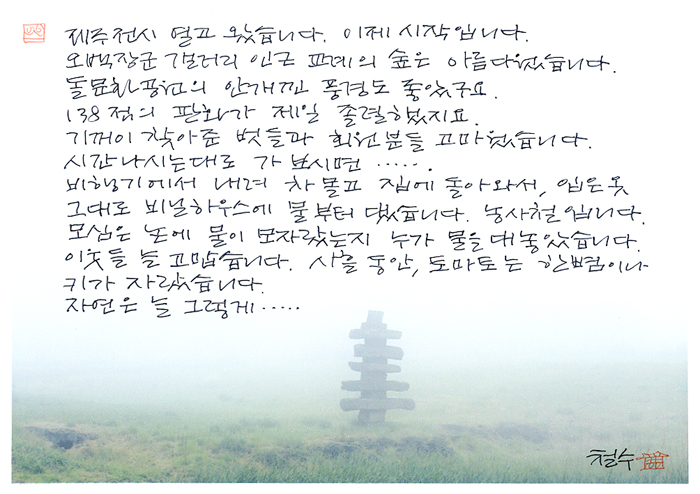 제주전시 열고 왔습니다. 이제 시작입니다.
오백장군 갤러리 인근 교래의 숲은 아름다웠습니다.
돌문화공원의 안개낀 풍경도 좋았구요.
138점의 판화가 제일 졸렬했지요.
기꺼이 찾아준 벗들과 회원분들 고마웠습니다.
시간나시는대로 가 보시면 ·····.
비행기에서 내려 차 몰고 집에 돌아와서, 입은옷
그대로 비닐하우스에 물부터 댔습니다. 농사철입니다.
모심은 논에 물이 모자랐는지 누가 물을 대 놓았습니다.
이웃들 늘 고맙습니다. 사흘 동안, 토마토는 한뼘이나
키가 자랐습니다.
자연은 늘 그렇게·····
철수